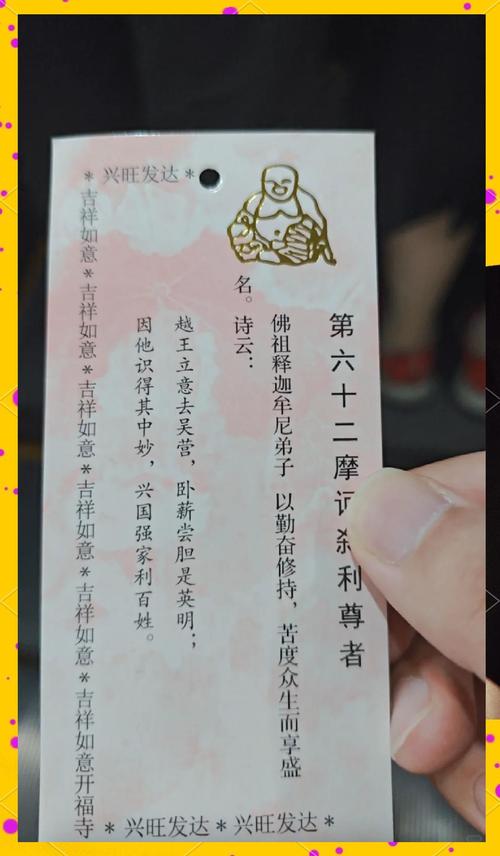 * 兴旺发达 *
第六十二摩利尊者
佛祖释迦牟尼弟子 以勤奋修持，苦度众生而享盛
名。诗云：
越王立意去吴营，卧薪尝胆是英明；
因他识得其中妙，兴国强家利百姓。
吉祥如意 * 吉祥如意 * 吉祥如意 * 吉祥如意 * 吉祥如意 * 吉祥如意开福寺
* 兴旺发达 * 兴旺发达 *